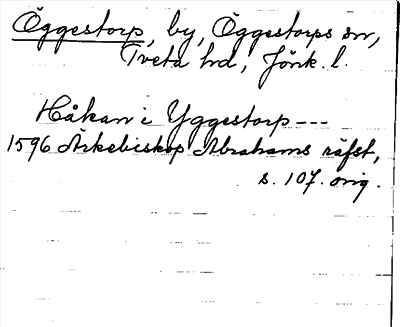 Öggestorp, by, Öggestorps sn,
Tveta hd, Jönk. l.
Håkan i Yggestorp ---
1596 Ärkebiskop Abrahams räfst,
s. 107. orig.